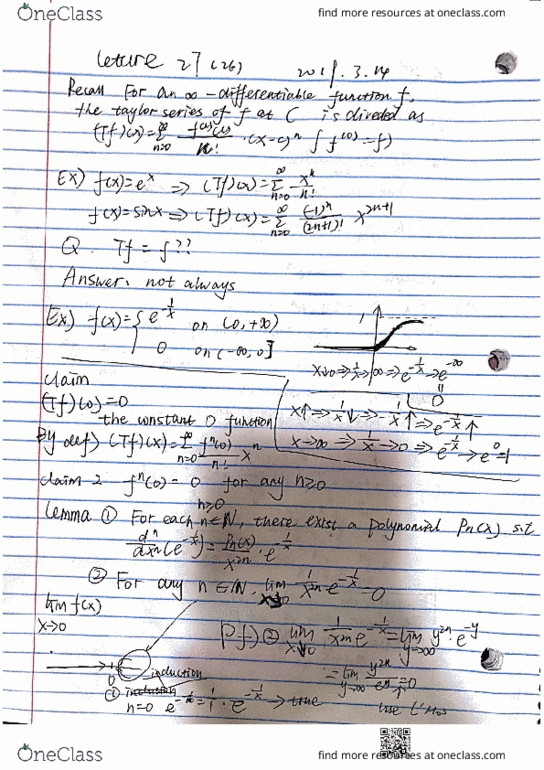 OneClass
find more resources at oneclass.com
Lecture 27 (26) 2019. 3. 14
Recall For an ∞-differentiable function f,
the taylor series of f at C is divided as
(Tf)(x)=∑_{n=0}^∞ f^(n)(c)/n! ·(x-c)^n ∫ f^(0)=f)
Ex) f(x)=e^x ⇒ (Tf)(x)=∑_{n=0}^∞ x^n/n!
f(x)=sinx ⇒ (Tf)(x)=∑_{n=0}^∞ (-1)^n/(2n+1)! x^{2n+1}
Q. Tf = f ??
Answer. not always
Ex) f(x)={ e^{-1/x} on (0,+∞)
0 on (-∞,0]
1
x↓0⇒1/x↑∞⇒e^{-1/x}→e^{-∞}
=0
claim
(Tf)(0)=0
the constant 0 function
x↑⇒1/x↓⇒-1/x↑⇒e^{-1/x}↑
x→∞⇒1/x→0⇒e^{-1/x}→e^0=1
By def) (Tf)(x)=∑_{n=0}^∞ f^n(0)/n! x^n
claim 2 f^n(0) = 0 for any n≥0
n≥0
Lemma ① For each n∈N, there exist a polynomial Pn(x) s.t
d^n/dx^n (e^{-1/x})=Pn(x)/x^{2n} · e^{-1/x}
② For any n∈N, lim_{x↓0} 1/x^{2n} e^{-1/x}=0
lim f(x)
x→0
Pf) ② lim_{x↓0} 1/x^{2n} e^{-1/x}=lim_{y→∞} y^{2n}·e^{-y}
=lim_{y→∞} y^{2n}/e^y=0
0
① induction
n=0 e^{-1/x}=1/1·e^{-1/x} → true
use L'Hos
OneClass
find more resources at oneclass.com